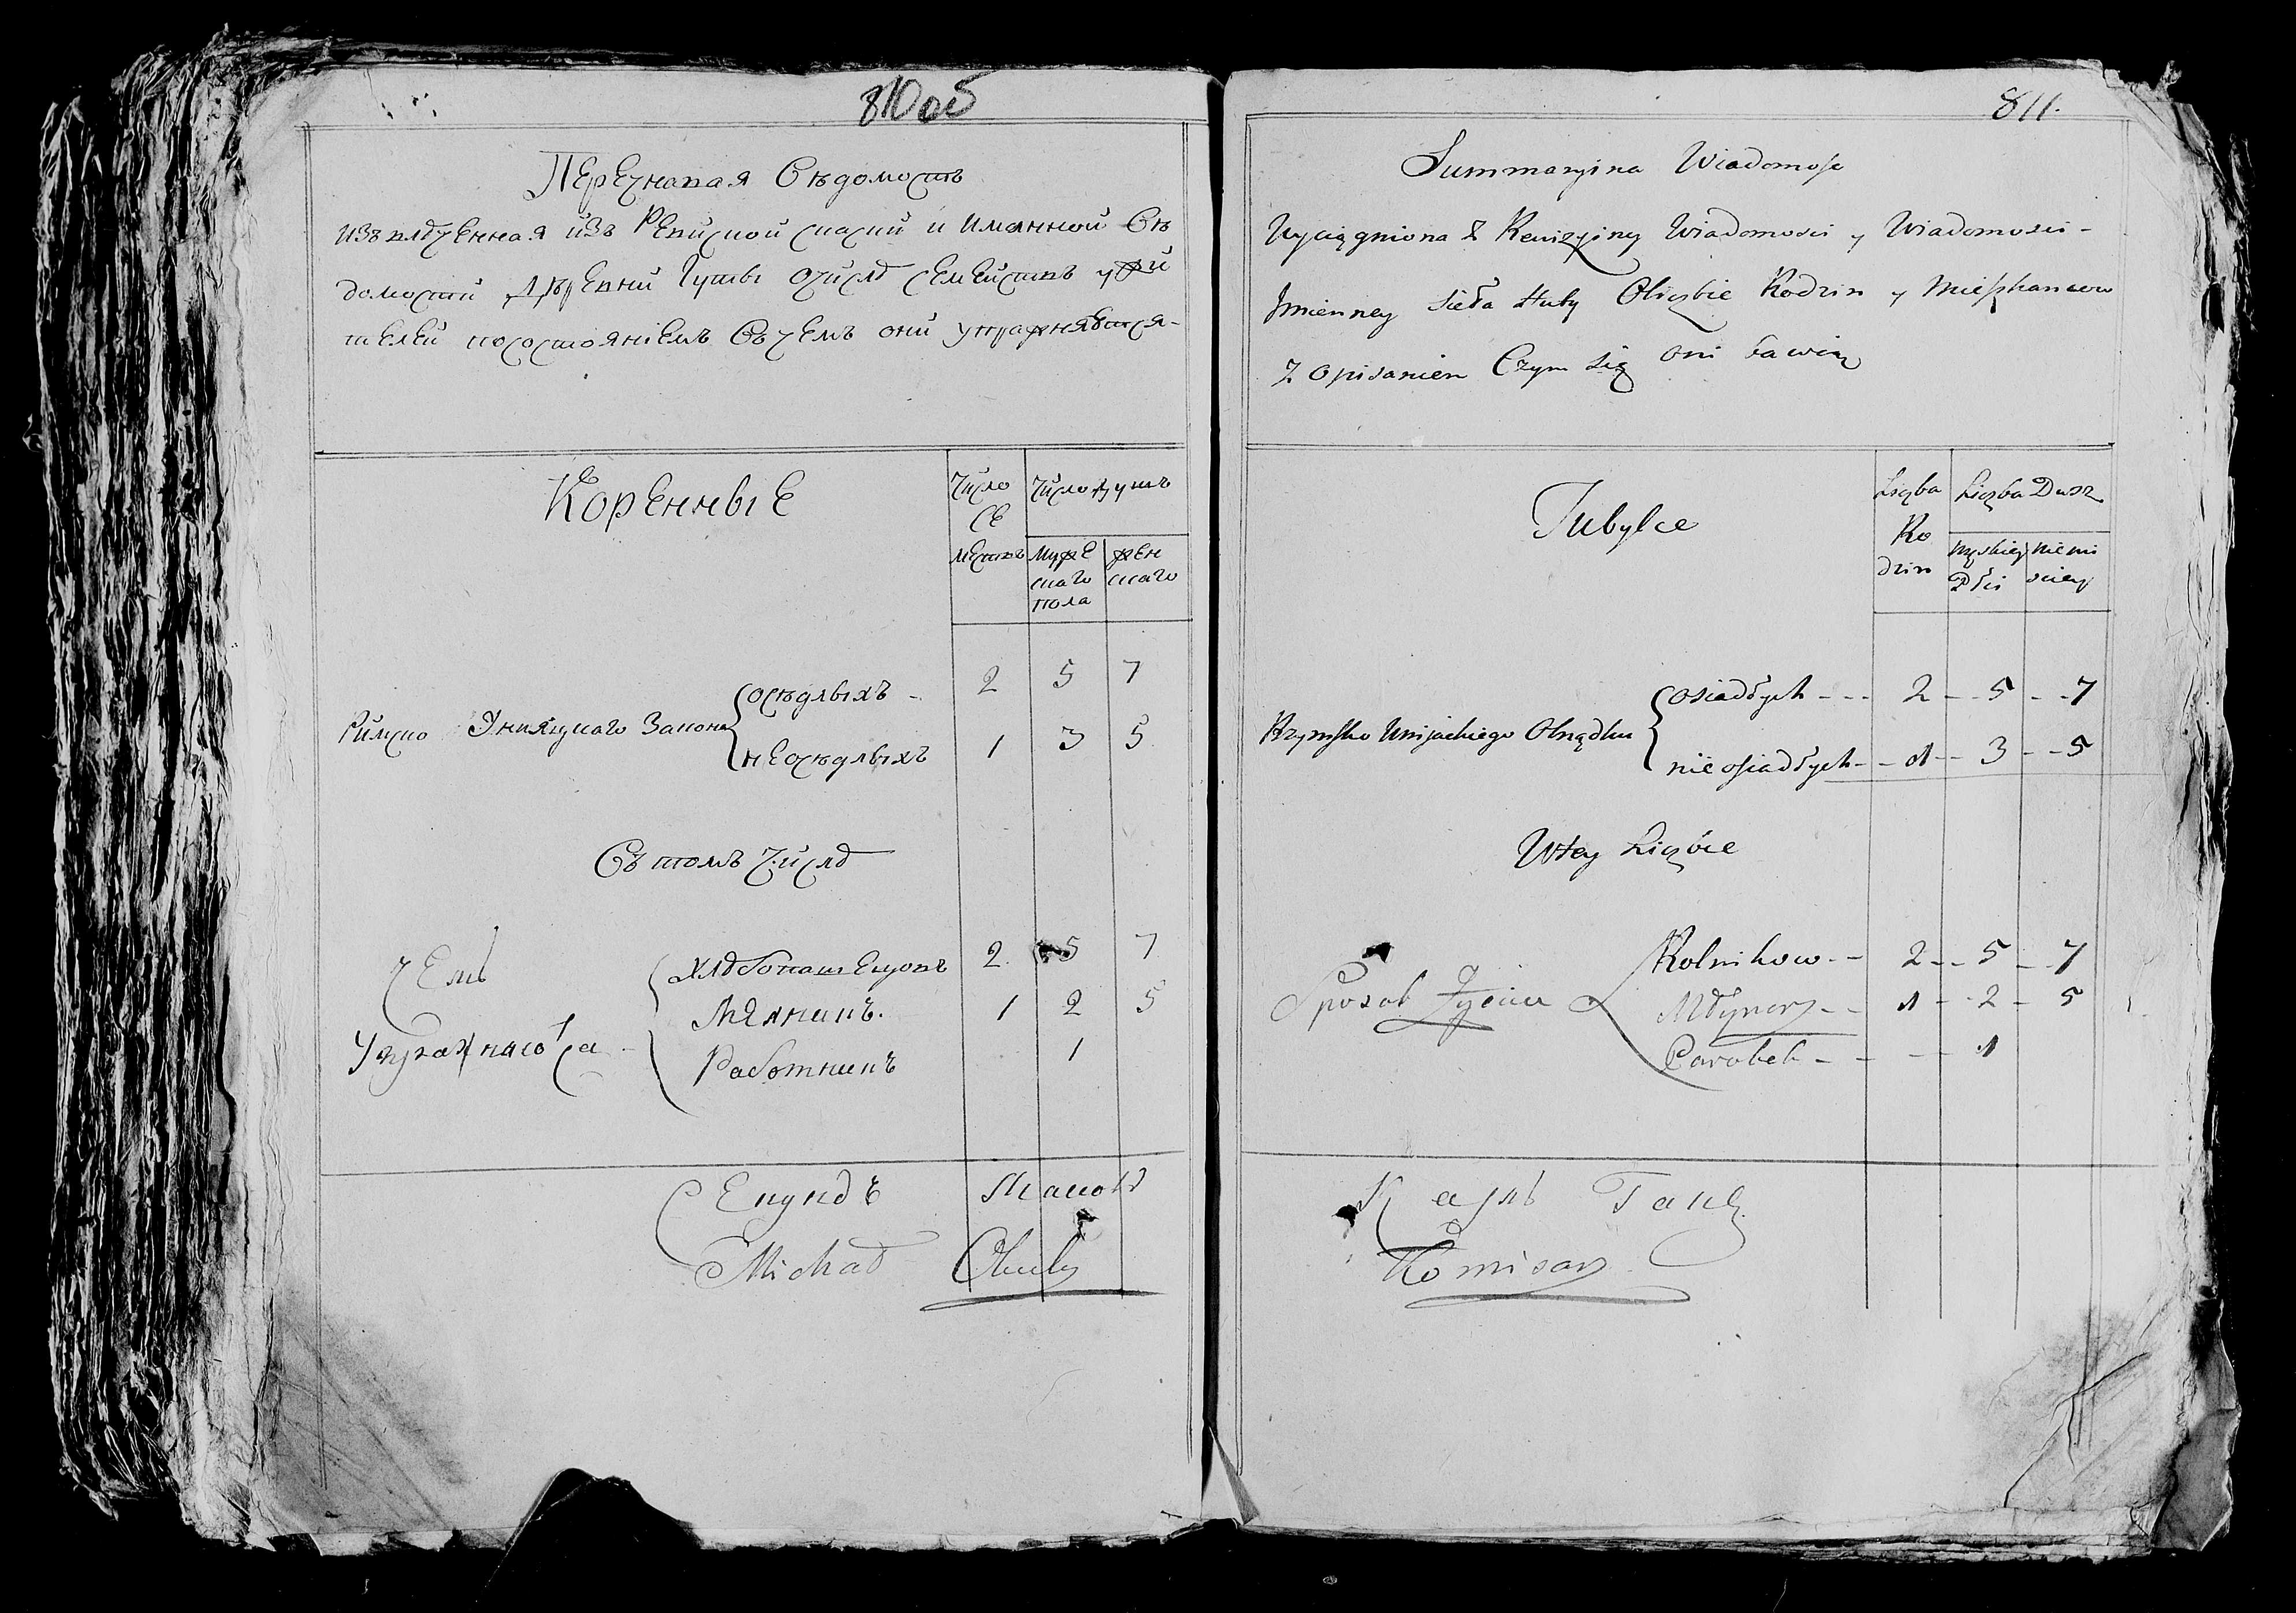 810 об
Перечневая Ведомость
извлеченная изъ Ревиской скаски и имянной Ве
домости Деревни Гуты очисле семействъ ужи
телей посостояніемъ Вчемъ они упражняются
Коренные
Число Се мействъ
Число Душъ
Мужескаго пола
женскаго
Римско Униядкаго Закона
оседлыхъ 2 5 7
неоседлыхъ 1 3 5
Въ томъ Числе
Чемъ
хлебопашецовъ 2 5 7
Мелникъ 1 2 5
Работникъ 1
Michał
811.
Summaryina Wiadomosc
Wyciągniona z Rewizyiney Wiadomosci y Wiadomosci
Jmienney Sieła Huty Oliczbie Rodzin y Mieszkancow
z opisaniem Czym się oni bawią
Tubylce
Liczba Rodzin
Liczba Dusz
męskiej Płci
niewiesciey
Rzymsko Unijackiego Obrządku
osiadłych - - - 2 - - 5 - - 7
nieosiadłych - - 1 - - 3 - - 5
Wtey Liczbie
Sposob Życia
Rolnikow - - 2 - - 5 - - 7
Młynarz - - 1 - - 2 - 5
Parobek - - - - 1
Komisarz